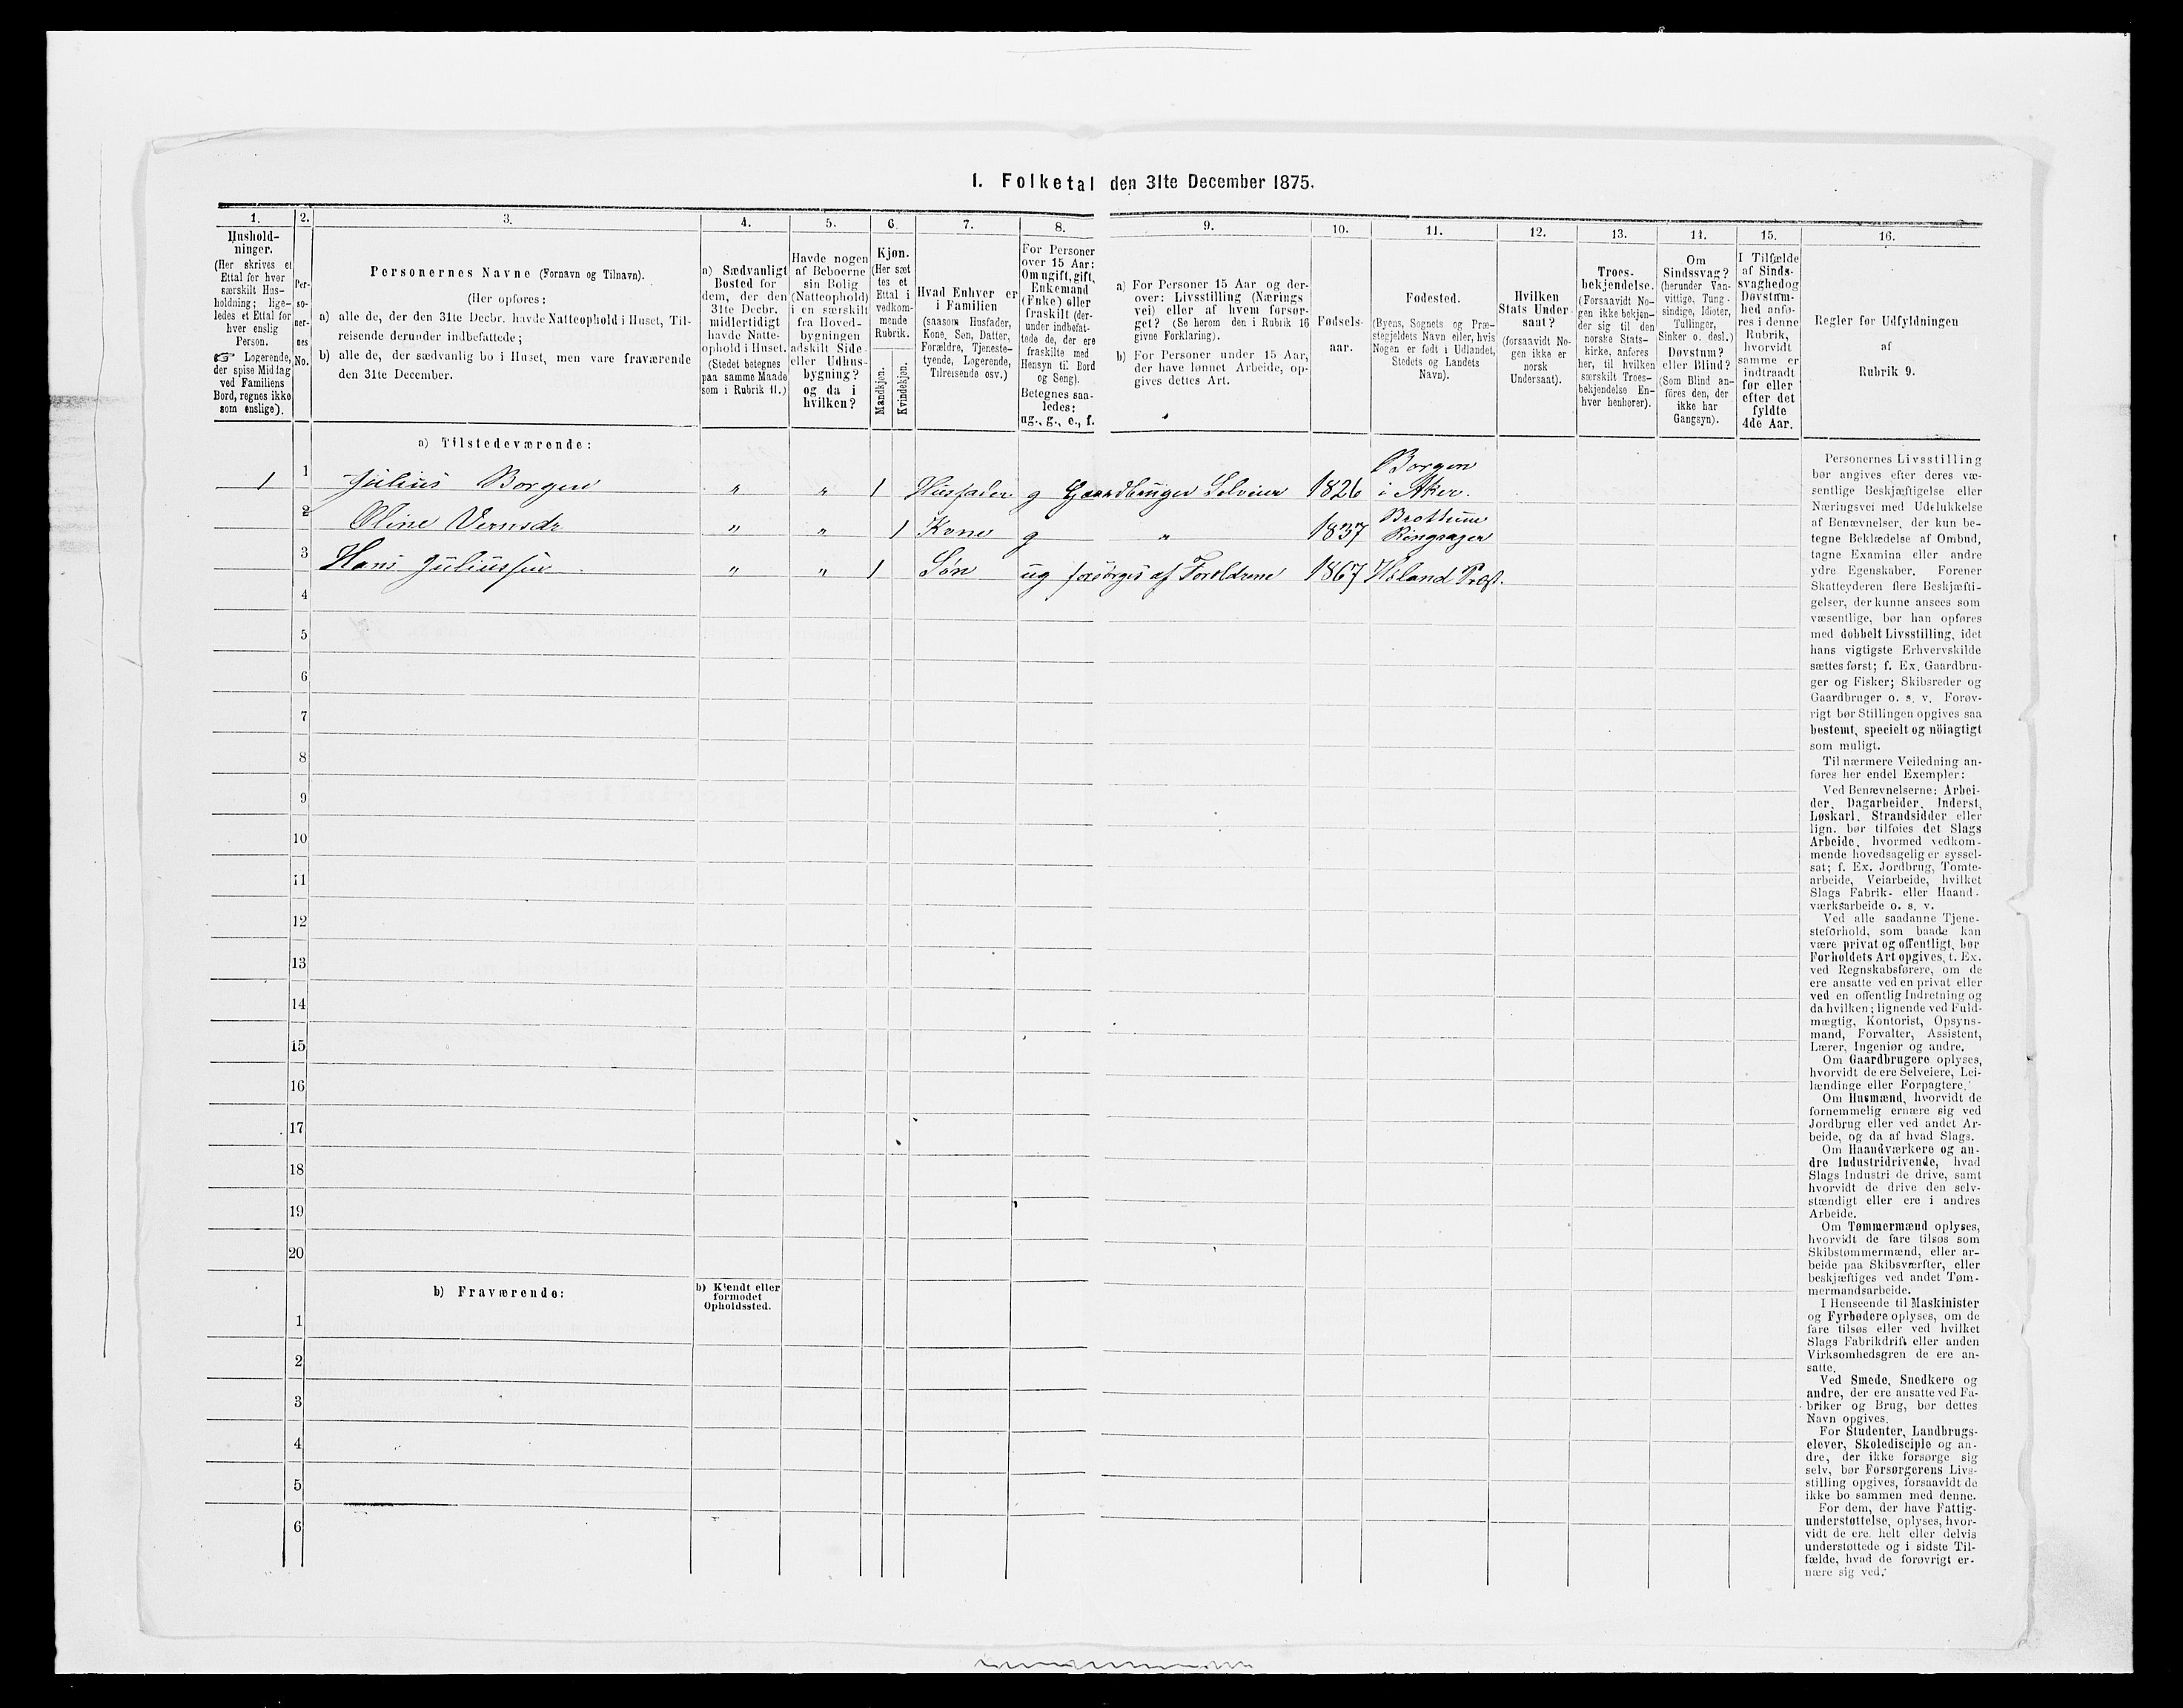 1. Folketal den 31te December 1875.
1.
Hushold-
ninger.
(Her skrives et
Ettal for hver
særskilt Hus-
holdning; lige-
ledes et Ettal for
hver enslig
Person.
☞ Logerende,
der spise Middag
ved Familiens
Bord, regnes ikke
som enslige).
2.
Per-
so-
ner-
nes
No.
3.
Personernes Navne (Fornavn og Tilnavn).
(Her opføres:
a) alle de, der den 31te Decbr. havde Natteophold i Huset, Til-
reisende derunder indbefattede;
b) alle de, der sædvanlig bo i Huset, men vare fraværende
den 31te December.
4.
a) Sædvanligt
Bosted for
dem, der den
31te Decbr.
midlertidigt
havde Natte-
ophold i Huset.
(Stedet betegnes
paa samme Maade
som i Rubrik 11.)
5.
Havde nogen
af Beboerne
sin Bolig
(Natteophold)
i en særskilt
fra Hoved-
bygningen
adskilt Side-
eller Udhus-
bygning?
og da i
hvilken?
6.
Kjøn.
(Her sæt
tes et
Ettal i
vedkom-
mende
Rubrik.
Mandkjøn.
Kvindekjøn.
7.
Hvad Enhver er
i Familien
(saasom Husfader,
Kone, Søn, Datter,
Forældre, Tjeneste-
tyende, Logerende,
Tilreisende osv.)
8.
For Personer
over 15 Aar:
Om ugift, gift,
Enkemand
(Enke) eller
fraskilt (der-
under indbefat-
tede de, der ere
fraskilte med
Hensyn til Bord
og Seng).
Betegnes saa-
ledes:
ug., g., e., f.
9.
a) For Personer 15 Aar og der-
over: Livsstilling (Nærings
vei) eller af hvem forsør-
get? (Se herom den i Rubrik 16
givne Forklaring).
b) For Personer under 15 Aar,
der have lønnet Arbeide, op-
gives dettes Art.
10.
Fødsels-
aar.
11.
Fødested.
(Byens, Sognets og Præ-
stegjeldets Navn eller, hvis
Nogen er født i Udlandet,
Stedets og Landets
Navn).
12.
Hvilken
Stats Under
saat?
(forsaavidt No-
gen ikke er
norsk
Undersaat).
13.
Troes-
bekjendelse.
(Forsaavidt No-
gen ikke bekjen-
der sig til den
norske Stats-
kirke, anføres
her, til hvilken
særskilt Troes-
bekjendelse En-
hver henhører).
14.
Om
Sindssvag?
(herunder Van-
vittige, Tung-
sindige, Idioter,
Tullinger,
Sinker o. desl.)
Døvstum?
eller Blind?
(Som Blind an-
føres den, der
ikke har
Gangsyn).
15.
I Tilfælde
af Sinds-
svaghed og
Døvstum-
hed anfø-
res i denne
Rubrik,
hvorvidt
samme er
indtraadt
før eller
efter det
fyldte
4de Aar.
16.
Regler for Udfyldningen
af
Rubrik 9.
a) Tilstedeværende:
1 1 Julius Borgen " " 1 Husfader g Gaardbruger Selveier 1826 Borgen
i Aker.
2 Oline Vernsdr " " 1 Kone g " 1837 Brottum
Ringsager
3 Hans Juliussen " " 1 Søn ug forsørges af Foreldrene 1867 Høland Præst.
4
5
6
7
8
9
10
11
12
13
14
15
16
17
18
19
20
b) Fraværende:
b) Kjendt eller
formodet
Opholdssted.
1
2
3
4
5
6
Personernes Livsstilling
bør angives efter deres væ-
sentlige Beskjæftigelse eller
Næringsvei med Udelukkelse
af Benævnelser, der kun be-
tegne Beklædelse af Ombud,
tagne Examina eller andre
ydre Egenskaber. Forener
Skatteyderen flere Beskjæfti-
gelser, der kunne ansees som
væsentlige, bør han opføres
med dobbelt Livsstilling, idet
hans vigtigste Erhvervskilde
sættes først; f. Ex. Gaardbru-
ger og Fisker; Skibsreder og
Gaardbruger o. s. v. Forøv-
rigt bør Stillingen opgives saa
bestemt, specielt og nöiagtigt
som muligt.
Til nærmere Veiledning an-
føres her endel Exempler:
Ved Benævnelserne: Arbei-
der, Dagarbeider, Inderst,
Løskarl, Strandsidder eller
lign. bør tilføies det Slags
Arbeide, hvormed vedkom-
mende hovedsagelig er syssel-
sat; f. Ex. Jordbrug, Tomte-
arbeide, Veiarbeide, hvilket
Slags Fabrik- eller Haand-
værksarbeide o. s. v.
Ved alle saadanne Tjene-
steforhold, som baade kan
være privat og offentligt, bør
Forholdets Art opgives, t. Ex.
ved Regnskabsførere, om de
ere ansatte ved en privat eller
ved en offentlig Indretning og
da hvilken; lignende ved Fuld-
mægtig, Kontorist, Opsyns-
mand, Forvalter, Assistent,
Lærer, Ingeniør og andre.
Om Gaardbrugere oplyses,
hvorvidt de ere Selveiere, Lei-
lændinge eller Forpagtere.
Om Husmænd, hvorvidt de
fornemmelig ernære sig ved
Jordbrug eller ved andet Ar-
beide, og da af hvad Slags.
Om Haandværkere og an-
dre Industridrivende, hvad
Slags Industri de drive, samt
hvorvidt de drive den selv-
stændigt eller ere i andres
Arbeide.
Om Tømmermænd oplyses,
hvorvidt de fare tilsøs som
Skibstømmermænd, eller ar-
beide paa Skibsværfter, eller
beskjæftiges ved andet Tøm-
mermandsarbeide.
I Henseende til Maskinister
og Fyrbødere oplyses, om de
fare tilsøs eller ved hvilket
Slags Fabrikdrift eller anden
Virksomhedsgren de ere an-
satte.
Ved Smede, Snedkere og
andre, der ere ansatte ved Fa-
briker og Brug, bør dettes
Navn opgives.
For Studenter, Landbrugs-
elever, Skoledisciple og an-
dre, der ikke forsørge sig
selv, bør Forsørgerens Livs-
stilling opgives, forsaavidt de
ikke bo sammen med denne.
For dem, der have Fattig-
understøttelse, oplyses, hvor-
vidt de ere helt eller delvis
understøttede og i sidste Til-
fælde, hvad de forøvrigt er-
nære sig ved.